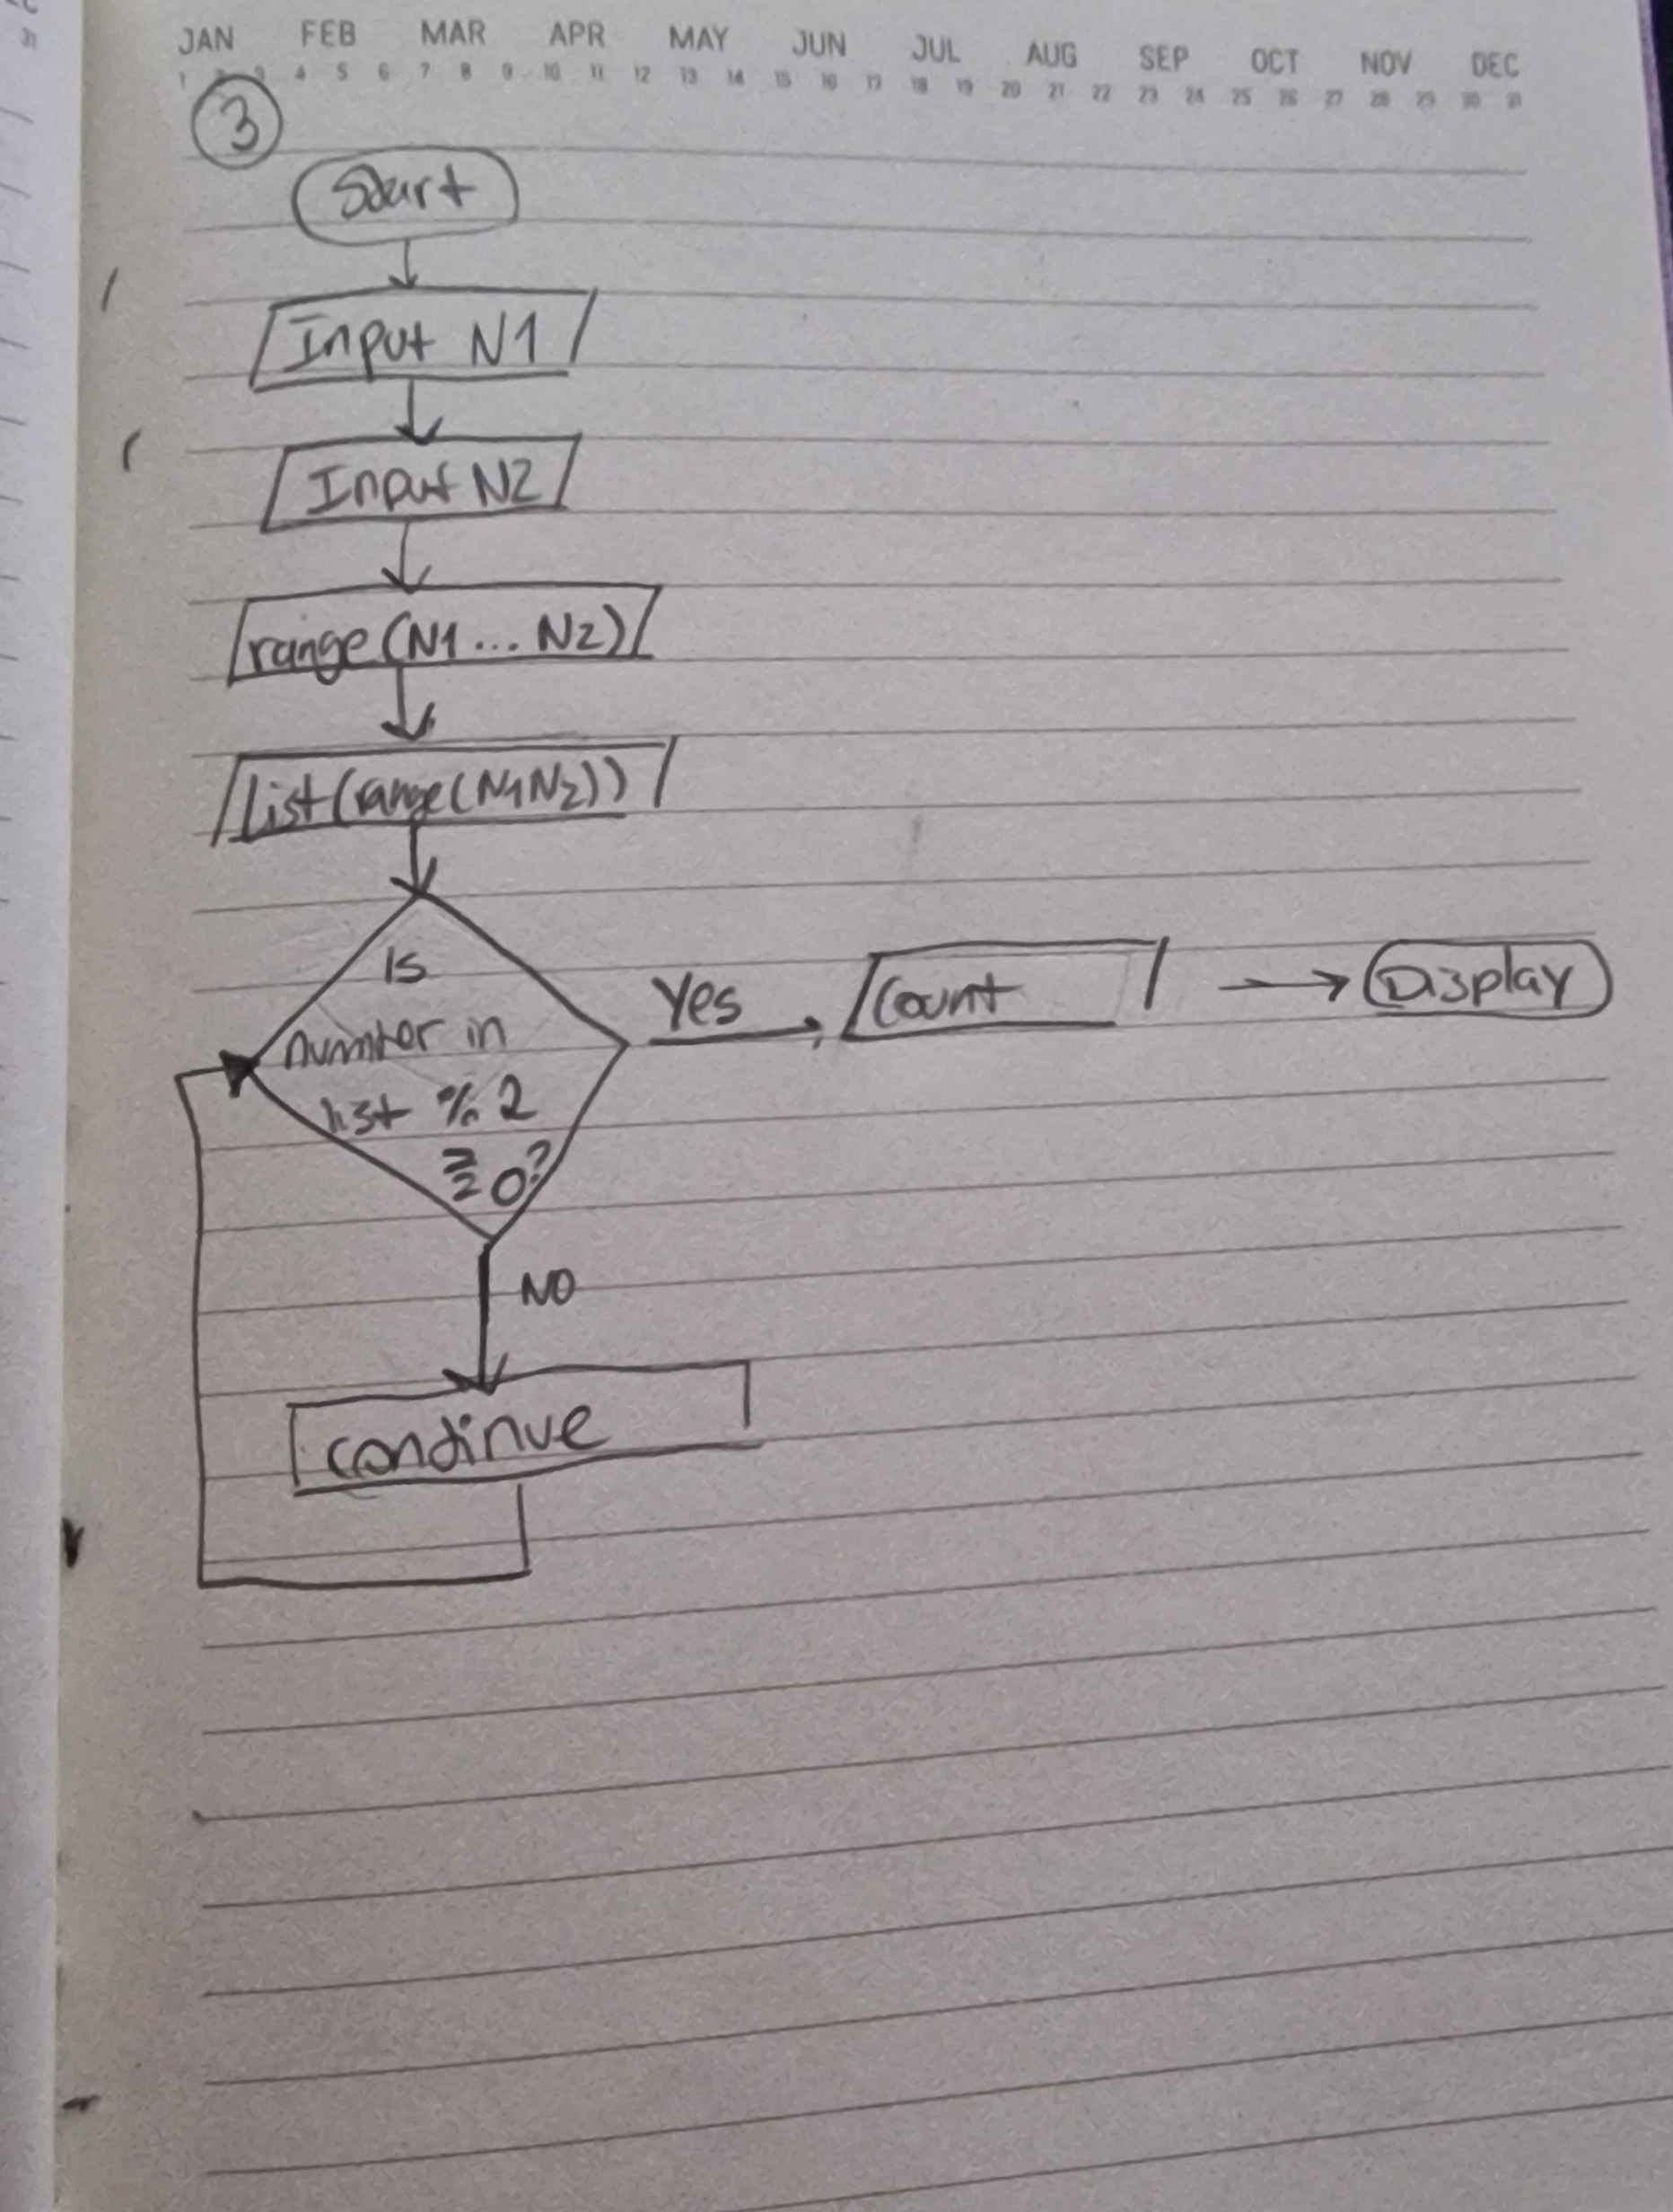 JAN FEB MAR APR MAY JUN JUL AUG SEP OCT NOV DEC
1 2 3 4 5 6 7 8 9 10 11 12 13 14 15 16 17 18 19 20 21 22 23 24 25 26 27 28 29 30 31
3
Start
Input N1
Input N2
range (N1 ... N2)
list(range(N1N2))
Is
number in
list % 2
0?
Yes
Count
Display
NO
continue
31